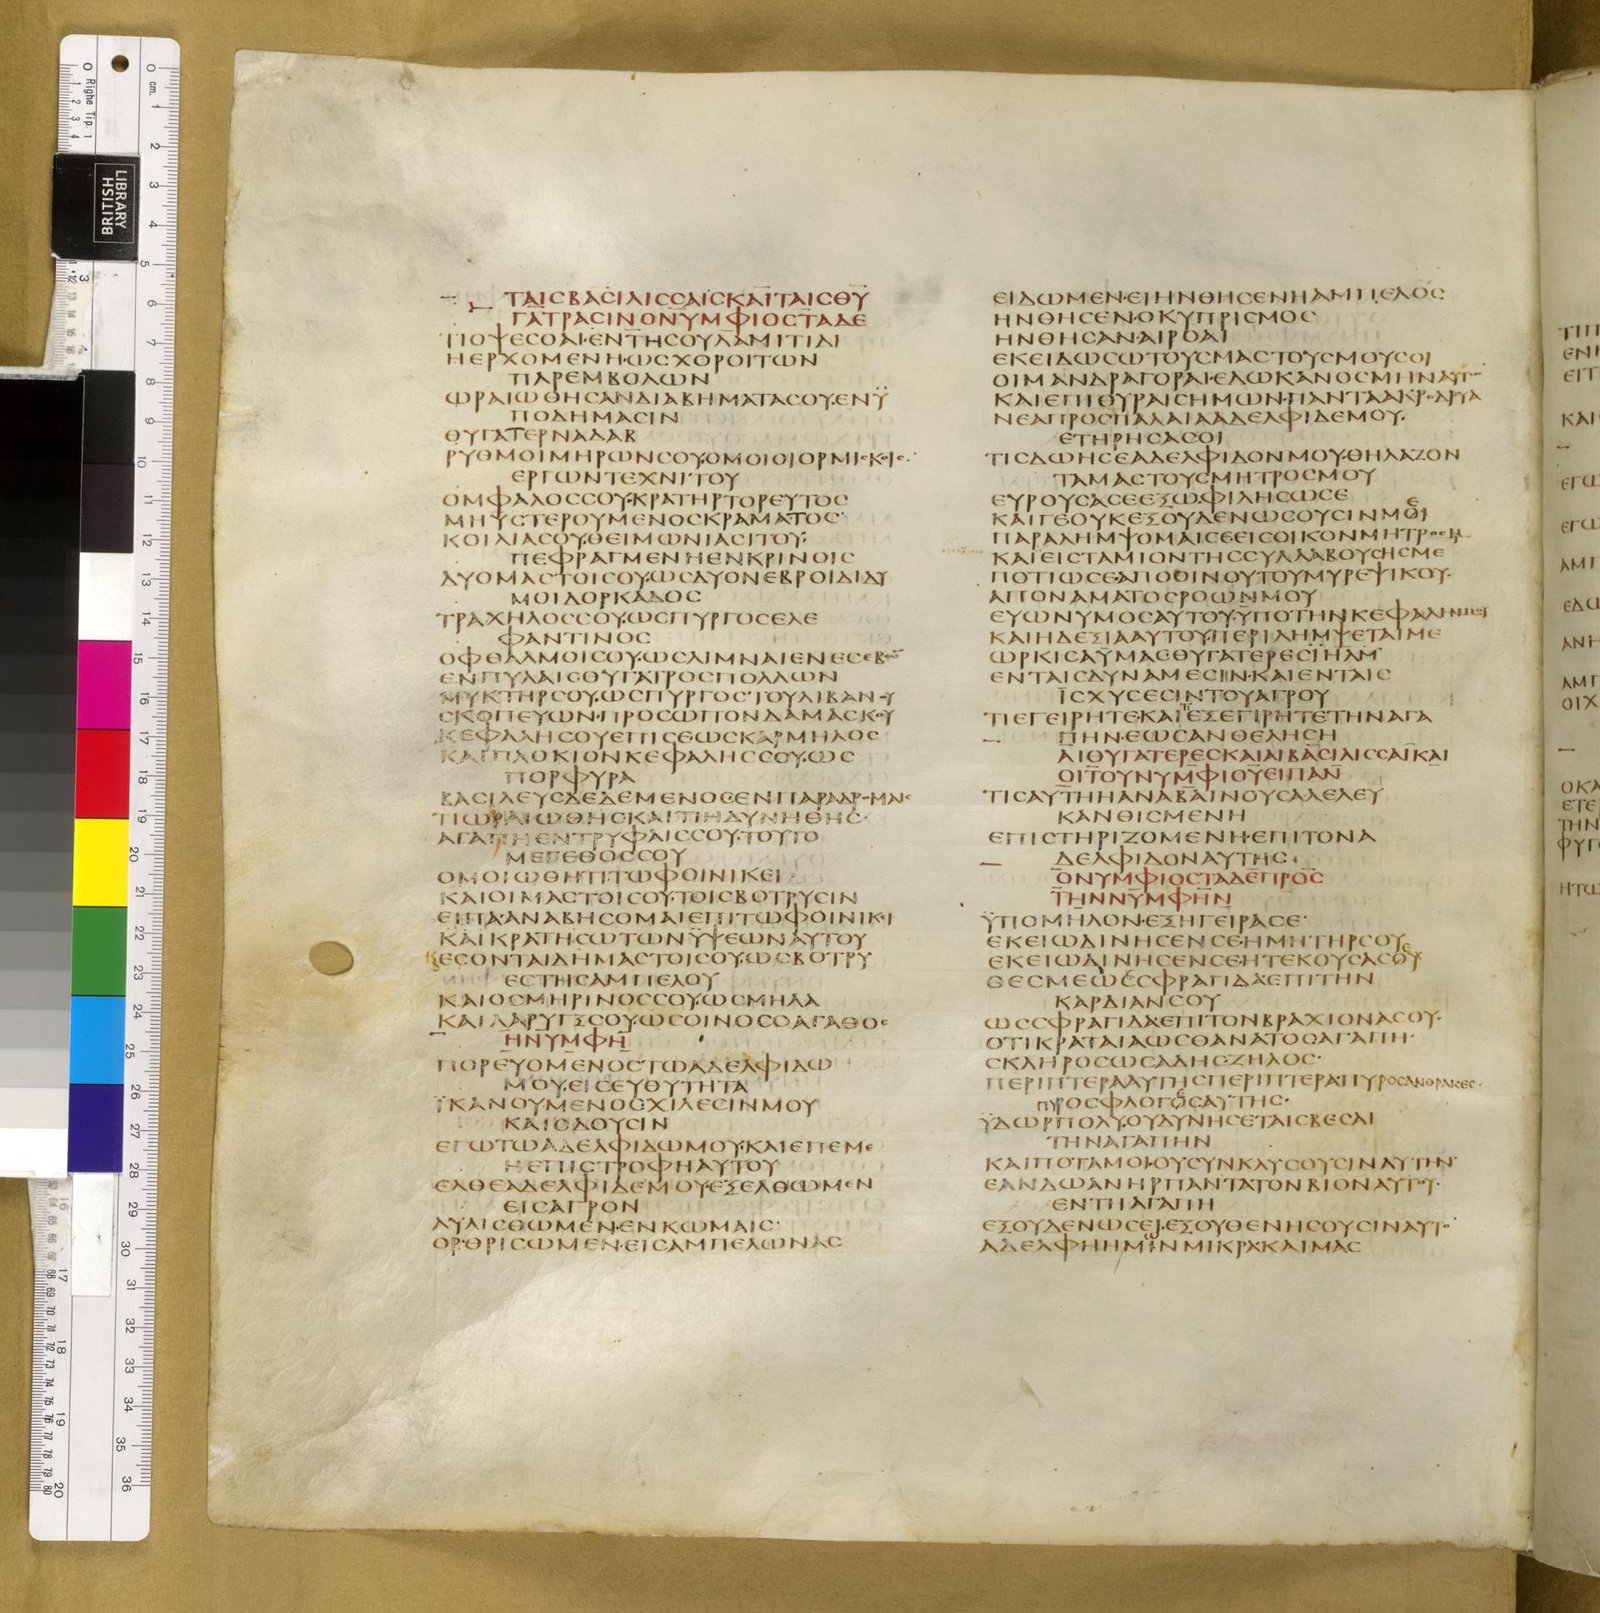 ΤΑΙϹΒΑϹΙΛΙϹϹΑΙϹΚΑΙΤΑΙϹΘΥ
ΓΑΤΡΑϹΙΝΟΝΥΜΦΙΟϹΤΑΔΕ
ΤΙΟΨΕϹΘΑΙ·ΕΝΤΗϹΟΥΛΑΜΙΤΙΔΙ
ΗΕΡΧΟΜΕΝΗ·ΩϹΧΟΡΟΙΤΩΝ
ΠΑΡΕΜΒΟΛΩΝ
ΩΡΑΙΩΘΗϹΑΝΔΙΑΒΗΜΑΤΑϹΟΥ·ΕΝΫ
ΠΟΔΗΜΑϹΙΝ
ΘΥΓΑΤΕΡΝΑΔΑΒ
ΡΥΘΜΟΙΜΗΡΩΝϹΟΥ·ΟΜΟΙΟΙΟΡΜΙϹΚΟΙϹ·
ΕΡΓΩΝΤΕΧΝΙΤΟΥ
ΟΜΦΑΛΟϹϹΟΥ·ΚΡΑΤΗΡΤΟΡΕΥΤΟϹ
ΜΗΥϹΤΕΡΟΥΜΕΝΟϹΚΡΑΜΑΤΟϹ·
ΚΟΙΛΙΑϹΟΥ·ΘΕΙΜΩΝΙΑϹΙΤΟΥ·
ΠΕΦΡΑΓΜΕΝΗΕΝΚΡΙΝΟΙϹ
ΔΥΟΜΑϹΤΟΙϹΟΥ·ΩϹΔΥΟΝΕΒΡΟΙΔΙΔΥ
ΜΟΙΔΟΡΚΑΔΟϹ
ΤΡΑΧΗΛΟϹϹΟΥ·ΩϹΠΥΡΓΟϹΕΛΕ
ΦΑΝΤΙΝΟϹ
ΟΦΘΑΛΜΟΙϹΟΥ·ΩϹΛΙΜΝΑΙΕΝΕϹΕΒΩΝ
ΕΝΠΥΛΑΙϹΘΥΓΑΤΡΟϹΠΟΛΛΩΝ
ΜΥΚΤΗΡϹΟΥ·ΩϹΠΥΡΓΟϹΤΟΥΛΙΒΑΝΟΥ
ϹΚΟΠΕΥΩΝ·ΠΡΟϹΩΠΟΝΔΑΜΑϹΚΟΥ
ΚΕΦΑΛΗϹΟΥΕΠΙϹΕΩϹΚΑΡΜΗΛΟϹ
ΚΑΙΠΛΟΚΙΟΝΚΕΦΑΛΗϹϹΟΥ·ΩϹ
ΠΟΡΦΥΡΑ
ΒΑϹΙΛΕΥϹΔΕΔΕΜΕΝΟϹΕΝΠΑΡΑΔΡΟΜΑΙϹ
ΤΙΩΡΑΙΩΘΗϹΚΑΙΤΙΗΔΥΝΗΘΗϹ·
ΑΓΑΠΗΕΝΤΡΥΦΑΙϹϹΟΥ·ΤΟΥΤΟ
ΜΕΓΕΘΟϹϹΟΥ
ΟΜΟΙΩΘΗΤΙΤΩΦΟΙΝΙΚΕΙ
ΚΑΙΟΙΜΑϹΤΟΙϹΟΥ·ΤΟΙϹΒΟΤΡΥϹΙΝ
ΕΙΠΑ·ΑΝΑΒΗϹΟΜΑΙΕΠΙΤΩΦΟΙΝΙΚΙ
ΚΑΙΚΡΑΤΗϹΩΤΩΝΫΨΕΩΝΑΥΤΟΥ
ΕϹΟΝΤΑΙΔΗΜΑϹΤΟΙϹΟΥ·ΩϹΒΟΤΡΥ
ΕϹΤΗϹΑΜΠΕΛΟΥ
ΚΑΙΟϹΜΗΡΙΝΟϹϹΟΥ·ΩϹΜΗΛΑ
ΚΑΙΛΑΡΥΓΞϹΟΥ·ΩϹΟΙΝΟϹΟΑΓΑΘΟϹ
ΗΝΥΜΦΗ
ΠΟΡΕΥΟΜΕΝΟϹΤΩΑΔΕΛΦΙΔΩ
ΜΟΥ·ΕΙϹΕΥΘΥΤΗΤΑ
ΪΚΑΝΟΥΜΕΝΟϹΧΙΛΕϹΙΝΜΟΥ
ΚΑΙΟΔΟΥϹΙΝ
ΕΓΩΤΩΑΔΕΛΦΙΔΩΜΟΥ·ΚΑΙΕΠΕΜΕ
ΗΕΠΙϹΤΡΟΦΗΑΥΤΟΥ
ΕΛΘΕΑΔΕΛΦΙΔΕΜΟΥ·ΕΞΕΛΘΩΜΕΝ
ΕΙϹΑΓΡΟΝ
ΑΥΛΙϹΘΩΜΕΝ·ΕΝΚΩΜΑΙϹ·
ΟΡΘΡΙϹΩΜΕΝ·ΕΙϹΑΜΠΕΛΩΝΑϹ
ΕΙΔΩΜΕΝ·ΕΙΗΝΘΗϹΕΝΗΑΜΠΕΛΟϹ
ΗΝΘΗϹΕΝ·ΟΚΥΠΡΙϹΜΟϹ
ΗΝΘΗϹΑΝ·ΑΙΡΟΑΙ
ΕΚΕΙΔΩϹΩΤΟΥϹΜΑϹΤΟΥϹΜΟΥϹΟΙ
ΟΙΜΑΝΔΡΑΓΟΡΑΙ·ΕΔΩΚΑΝΟϹΜΗΝΑΥΤΩ
ΚΑΙΕΠΙΘΥΡΑΙϹΗΜΩΝ·ΠΑΝΤΑΑΚΡΟΔΡΥΑ
ΝΕΑΠΡΟϹΠΑΛΑΙΑΑΔΕΛΦΙΔΕΜΟΥ·
ΕΤΗΡΗϹΑϹΟΙ
ΤΙϹΔΩΗϹΕΑΔΕΛΦΙΔΟΝΜΟΥ·ΘΗΛΑΖΟΝ
ΤΑΜΑϹΤΟΥϹΜΗΤΡΟϹΜΟΥ
ΕΥΡΟΥϹΑϹΕΕΞΩ·ΦΙΛΗϹΩϹΕ
ΚΑΙΓΕΟΥΚΕΞΟΥΔΕΝΩϹΟΥϹΙΝΜΟΙ
ΠΑΡΑΛΗΜΨΟΜΑΙϹΕΕΙϹΟΙΚΟΝΜΗΤΡΟϹΜ
ΚΑΙΕΙϹΤΑΜΙΟΝΤΗϹϹΥΛΛΑΒΟΥϹΗϹΜΕ
ΠΟΤΙΩϹΕ·ΑΠΟΟΙΝΟΥΤΟΥΜΥΡΕΨΙΚΟΥ·
ΑΠΟΝΑΜΑΤΟϹΡΟΩΝΜΟΥ
ΕΥΩΝΥΜΟϹΑΥΤΟΥ·ΫΠΟΤΗΝΚΕΦΑΛΗΝΜΟΥ
ΚΑΙΗΔΕΞΙΑΑΥΤΟΥ·ΠΕΡΙΛΗΜΨΕΤΑΙΜΕ
ΩΡΚΙϹΑΫΜΑϹΘΥΓΑΤΕΡΕϹΙΗΛΜ
ΕΝΤΑΙϹΔΥΝΑΜΕϹΙΝ·ΚΑΙΕΝΤΑΙϹ
ΪϹΧΥϹΕϹΙΝΤΟΥΑΓΡΟΥ
ΤΙΕΓΕΙΡΗΤΕ·ΚΑΙΕΞΕΓΙΡΗΤΕΤΗΝΑΓΑ
ΠΗΝ·ΕΩϹΑΝΘΕΛΗϹΗ
ΑΙΘΥΓΑΤΕΡΕϹΚΑΙΑΙΒΑϹΙΛΙϹϹΑΙΚΑΙ
ΟΙΤΟΥΝΥΜΦΙΟΥΕΙΠΑΝ
ΤΙϹΑΥΤΗΗΑΝΑΒΑΙΝΟΥϹΑΛΕΛΕΥ
ΚΑΝΘΙϹΜΕΝΗ
ΕΠΙϹΤΗΡΙΖΟΜΕΝΗ·ΕΠΙΤΟΝΑ
ΔΕΛΦΙΔΟΝΑΥΤΗϹ·
ΟΝΥΜΦΙΟϹΤΑΔΕΠΡΟϹ
ΤΗΝΝΥΜΦΗΝ
ΫΠΟΜΗΛΟΝ·ΕΞΗΓΕΙΡΑϹΕ·
ΕΚΕΙΩΔΙΝΗϹΕΝϹΕ·ΗΜΗΤΗΡϹΟΥ
ΕΚΕΙΩΔΙΝΗϹΕΝϹΕΗΤΕΚΟΥϹΑϹΟΥ
ΘΕϹΜΕΩϹϹΦΡΑΓΙΔΑΕΠΙΤΗΝ
ΚΑΡΔΙΑΝϹΟΥ
ΩϹϹΦΡΑΓΙΔΑ·ΕΠΙΤΟΝΒΡΑΧΙΟΝΑϹΟΥ·
ΟΤΙΚΡΑΤΑΙΑΩϹΘΑΝΑΤΟϹΑΓΑΠΗ·
ϹΚΛΗΡΟϹΩϹΑΔΗϹ·ΖΗΛΟϹ·
ΠΕΡΙΠΤΕΡΑΑΥΤΗϹΠΕΡΙΠΤΕΡΑΠΥΡΟϹΑΝΘΡΑΚΕϹ·
ΠΥΡΟϹΦΛΟΓΟϹΑΥΤΗϹ·
ΫΔΩΡΠΟΛΥ·ΟΥΔΥΝΗϹΕΤΑΙϹΒΕϹΑΙ
ΤΗΝΑΓΑΠΗΝ
ΚΑΙΠΟΤΑΜΟΙ·ΟΥϹΥΝΚΛΥϹΟΥϹΙΝΑΥΤΗΝ·
ΕΑΝΔΩΑΝΗΡΠΑΝΤΑΤΟΝΒΙΟΝΑΥΤΟΥ·
ΕΝΤΗΑΓΑΠΗ
ΕΞΟΥΔΕΝΩϹΕΙ·ΕΞΟΥΘΕΝΗϹΟΥϹΙΝΑΥΤΟ
ΑΔΕΛΦΗΗΜΙΝΜΙΚΡΑΚΑΙΜΑϹ
BRITISH
LIBRARY